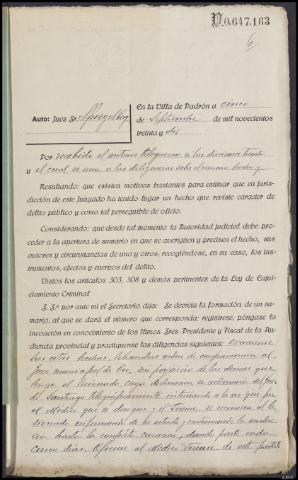 D.0.647.163
6
Auto: Juez Sr. Spiegelberg
En la Villa de Padrón a cinco
de Septiembre de mil novecientos
treinta y dos
Por recibido el anterior telegrama a las diecinueve treinta
y el cual se une a las diligencias
Resultando: que existen motivos bastantes para estimar que en juris-
dicción de este Juzgado ha tenido lugar un hecho que reviste caracter de
delito público y como tal perseguible de oficio.
Considerando: que desde tal momento la Autoridad judicial debe proce-
der a la apertura de sumario en que se averigüen y precisen el hecho, sus
autores y circunstancias de uno y otros, recogiéndose, en su caso, los instru-
mentos, efectos y cuerpos del delito.
Vistos los artículos 303, 308 y demás pertinentes de la Ley de Enjui-
ciamiento Criminal
S. Sª por ante mi el Secretario dijo: Se decreta la formación de un su-
mario, al que se dará el número que corresponda: regístrese, póngase la
incoación en conocimiento de los Ilmos. Sres. Presidente y Fiscal de la Au-
diencia provincial y practíquense las diligencias siguientes:
los autos hechos, librándose orden de comparecencia al
Juez municipal de sin perjuicio de las demás que
haga el lesionado, cuya declaración se del Juez
de Santiago telegráficamente a la vez que por
el Médico que se designe, y el Forense, se reconozca al le-
sionado informando de su estado y continuando la asisten-
cia hasta la completa curación, dando parte cada
cinco días. Ofíciese al Médico Forense de este partido